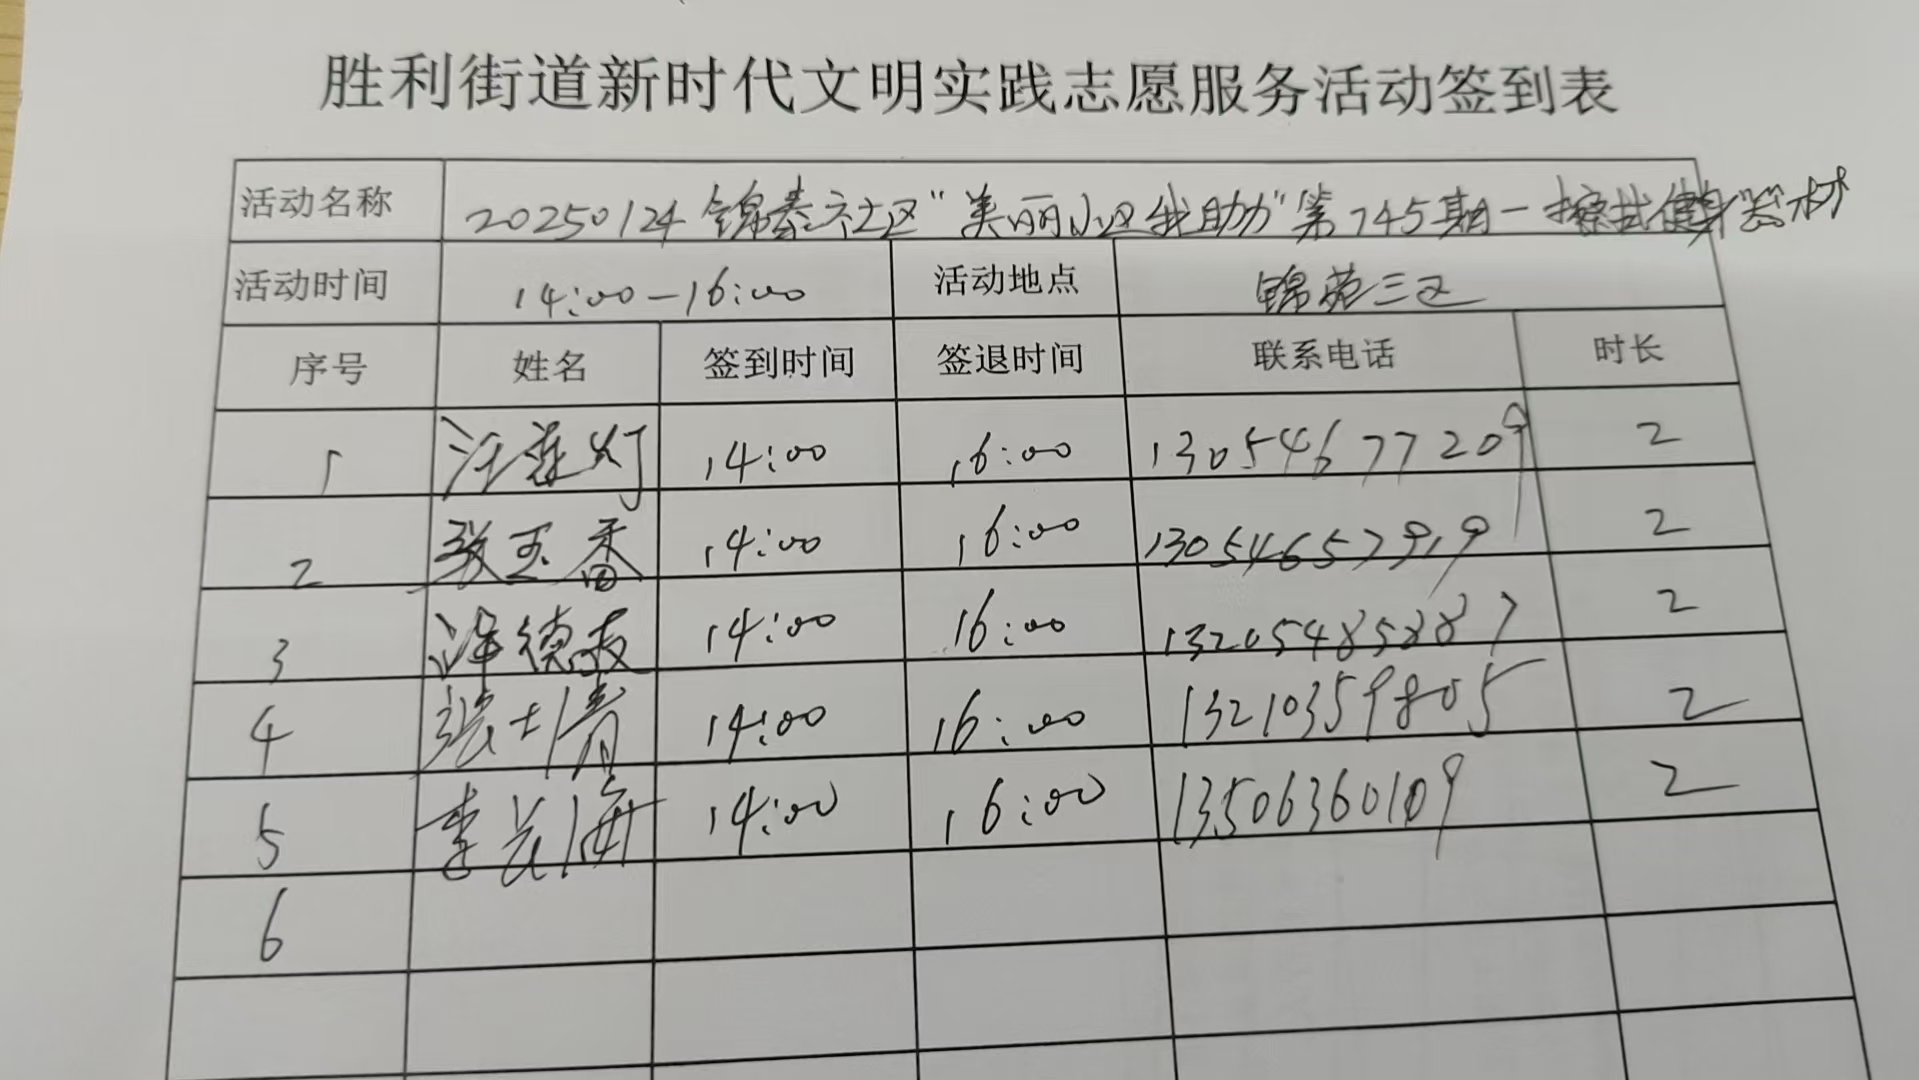 胜利街道新时代文明实践志愿服务活动签到表
活动名称 20250124锦泰社区"美丽小区我助力"第745期-擦拭健身器材
活动时间 14:00-16:00 活动地点 锦苑三区
序号 姓名 签到时间 签退时间 联系电话 时长
1 汪莲灯 14:00 16:00 13054677209 2
2 张玉香 14:00 16:00 13054657919 2
3 德 14:00 16:00 13205485887 2
4 张士清 14:00 16:00 13210359805 2
5 李兰海 14:00 16:00 13506360109 2
6